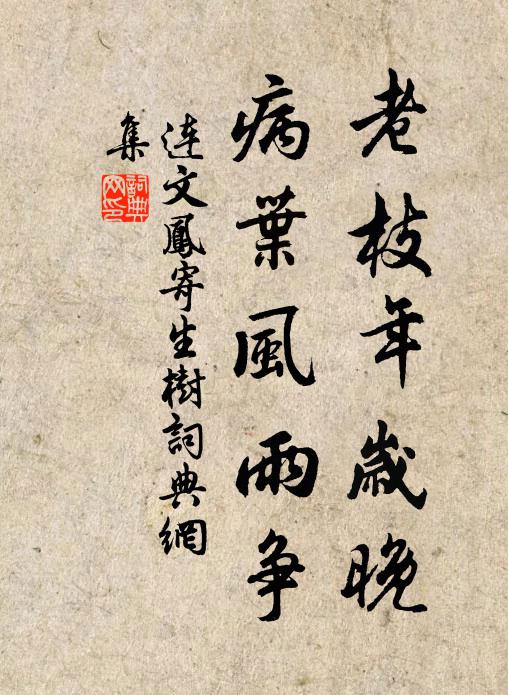 老枝年歲晚
病葉風雨爭
連文鳳寄生樹詞典網
集
詞典
网印